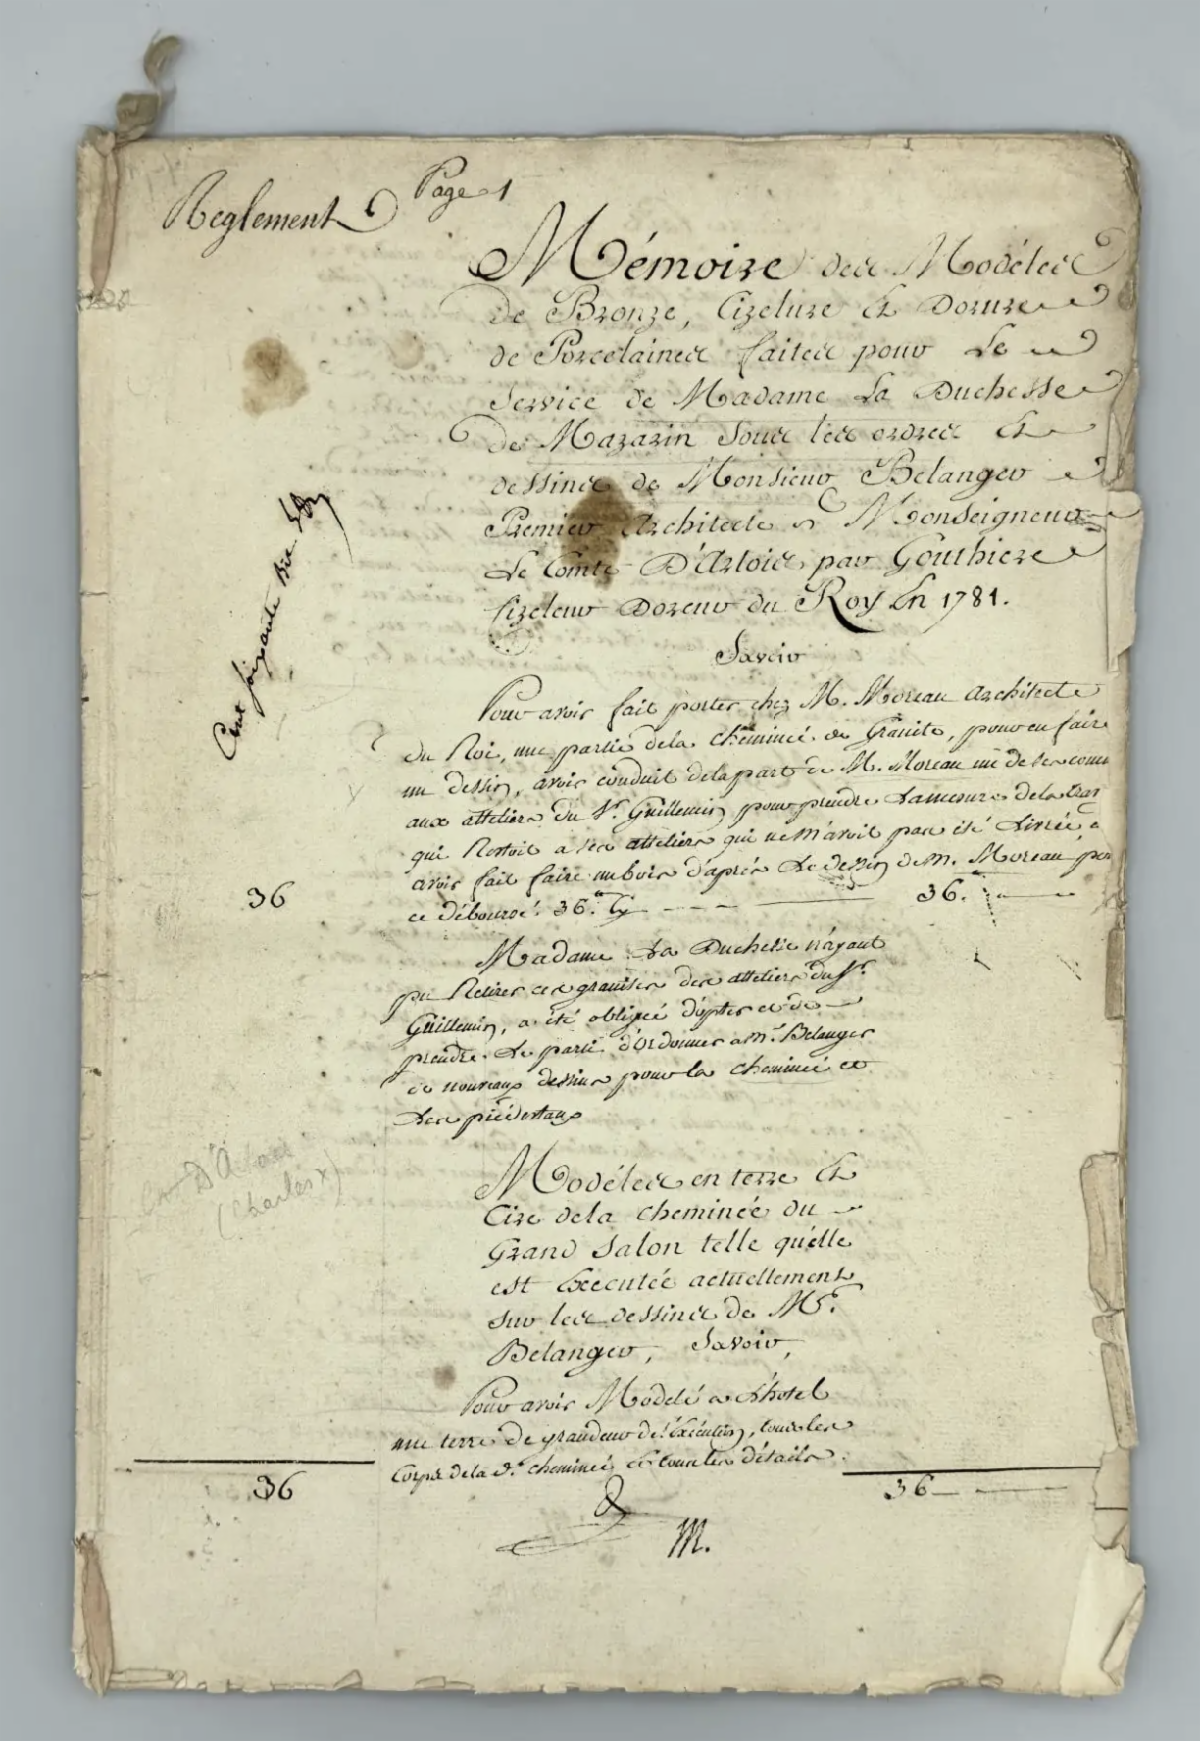 Reglement
Page 1
Mémoire des Modéles
De Bronze, Cizelure Et Dorure
de Porcelaines faites pour Le
Service de Madame La Duchesse
de Mazarin Sous les ordres Et
dessins de Monsieur Belanger
Premier Architecte de Monseigneur
Le Comte D'Artois, par Gouthiere
Cizeleur Doreur du Roy En 1781.
Savoir
Pour avoir fait porter chez M. Moreau Architecte
du Roi, une partie dela cheminée de Granite, pour en faire
un dessin, avoir conduit dela part de M. Moreau un de ses
aux atteliers du Sr. Guillemin pour prendre La mesure dela
qui Restoit a ses atteliers qui ne m'avoit pas été Livrée
avoir fait faire un bois d'aprés Le dessin de M. Moreau
36 ce déboursé. 36. 36.
Madame La Duchesse n'ayant
pu Retirer ces granites des atteliers du Sr.
Guillemin, a été obligée d'opter et de
prendre Le parti d'Ordonner a Mr. Belanger
de nouveaux dessins pour la cheminée et
Les piédestaux
Cte D'Artois
(Charles X)
Modéles en terre Et
Cire dela cheminée du
Grand Salon telle qu'elle
est Executée actuellement
sur les dessins de Mr.
Belanger, Savoir,
Pour avoir Modelé a L'hotel
une terre de grandeur de l'Execution, tous les
Corps dela d. cheminée et tous les détails.
36 36
M.